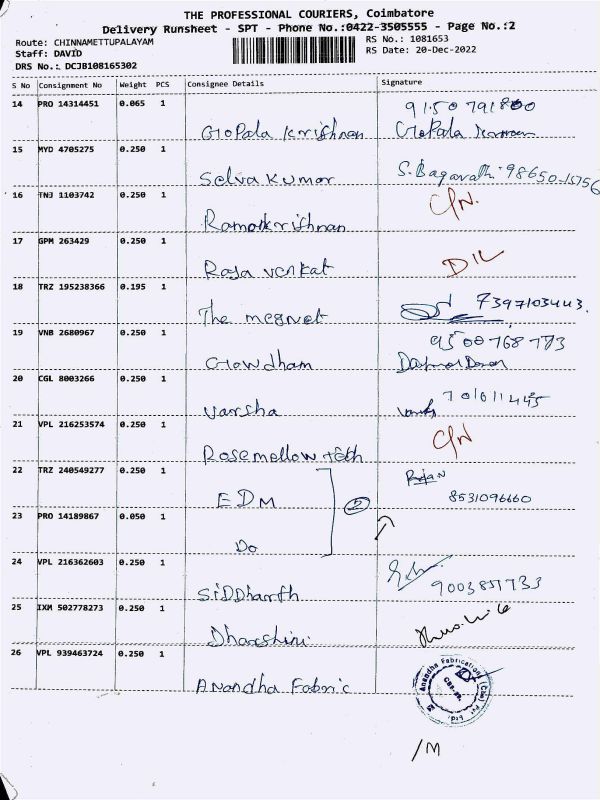 THE PROFESSIONAL COURIERS, Coimbatore
Delivery Runsheet - SPT - Phone No.:0422-3505555 - Page No.:2
Route: CHINNAMETTUPALAYAM RS No.: 1081653
Staff: DAVID RS Date: 20-Dec-2022
DRS No.: DCJB108165302
S No Consignment No Weight PCS Consignee Details Signature
14 PRO 14314451 0.065 1
GoPala Krishnan
15 MYD 4705275 0.250 1
Selva Kumar S. Bagavathi 98650-15756
16 TNJ 1103742 0.250 1 C/N.
Ramakrishnan
17 GPM 263429 0.250 1
Raja venkat D/L
18 TRZ 195238366 0.195 1 7397103443.
The
19 VNB 2680967 0.250 1 9500768773
Gowdham
20 CGL 8003266 0.250 1
varsha
21 VPL 216253574 0.250 1 C/N
Rosemellow tech
22 TRZ 240549277 0.250 1 Rajan
EDM 2 8531096660
23 PRO 14189867 0.050 1
Do
24 VPL 216362603 0.250 1
SiDDharth
25 IXM 502778273 0.250 1
Dharshini
26 VPL 939463724 0.250 1
Anandha Fabric
Anandha Fabrications (Cbe) Pvt. Ltd.
/M